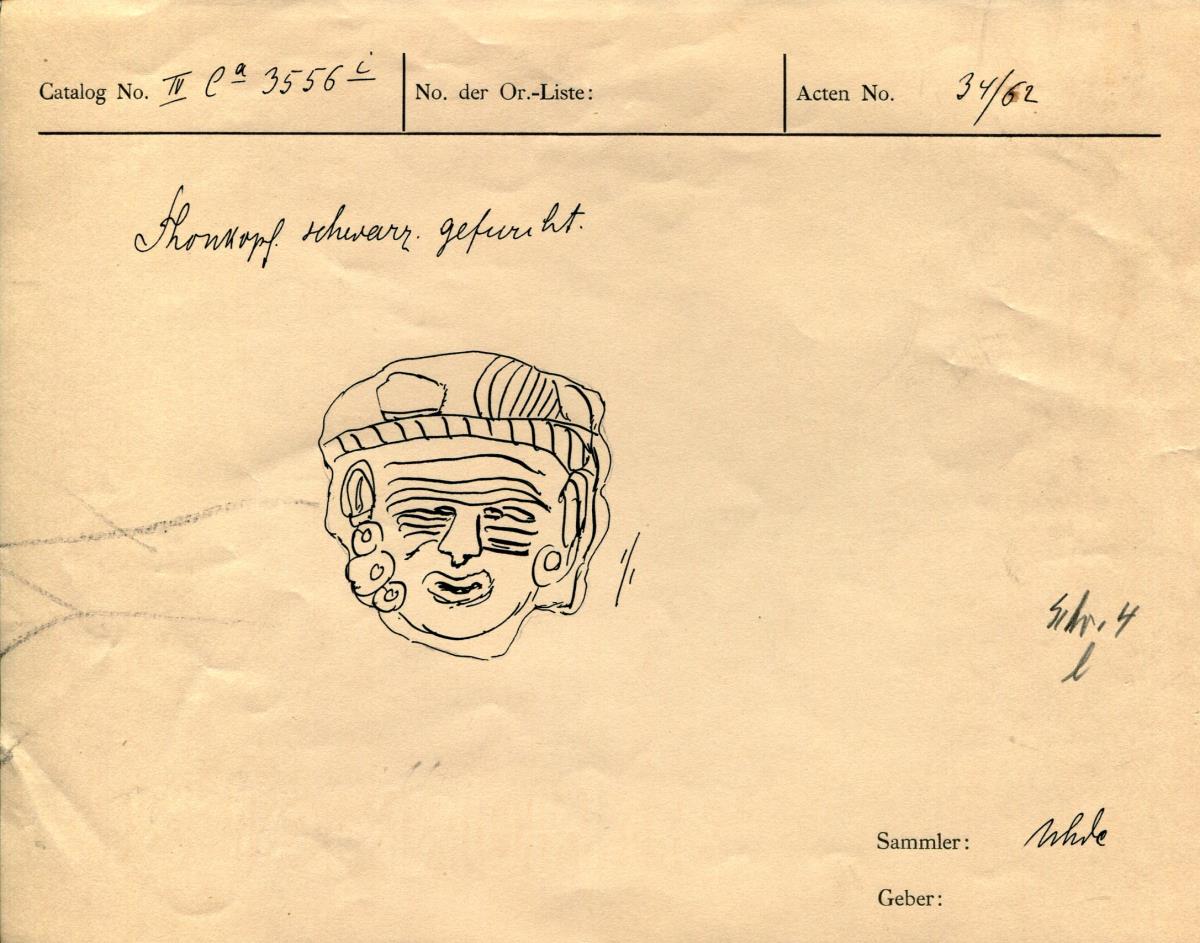 Catalog No. IV Ca 3556 i
No. der Or.-Liste:
Acten No. 34/62
Thonkopf. schwarz. gefurcht.
1/1
Schr. 4
l
Sammler: Uhde
Geber: